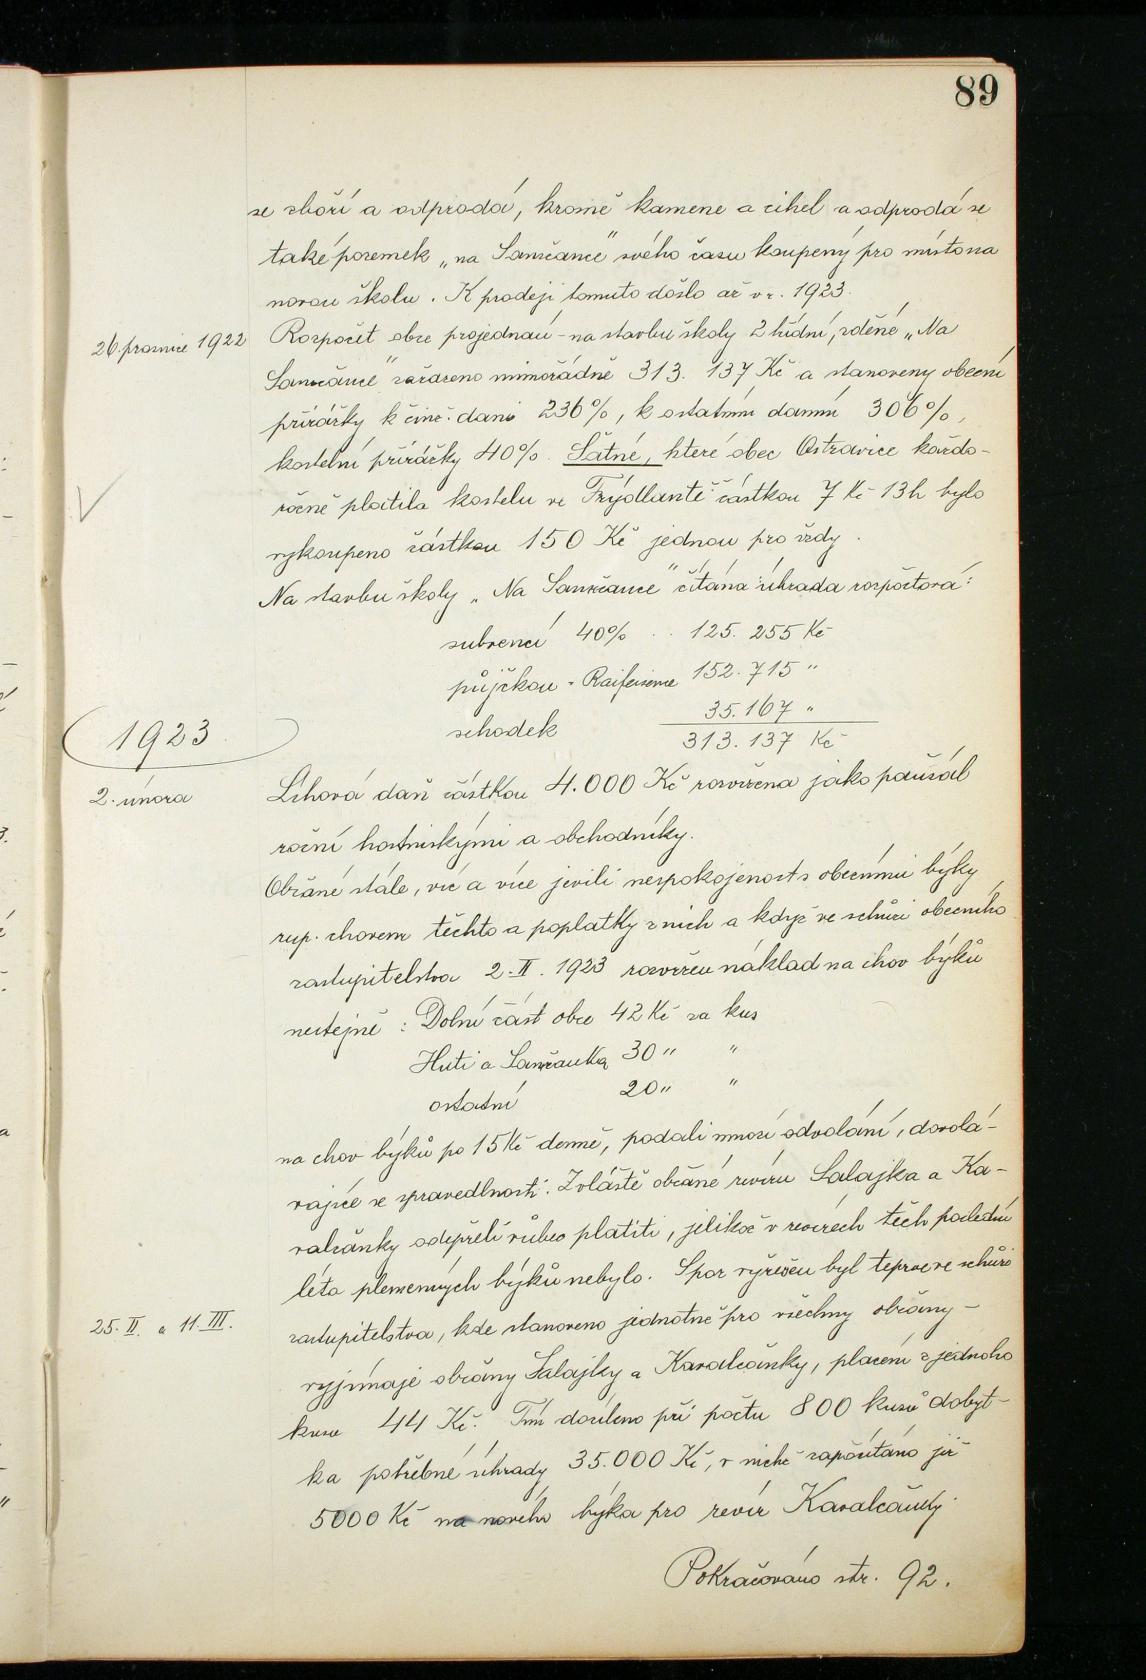 89
se zboří a odprodá, kromě kamene a cihel a odprodá se
také pozemek „na Samčance" svého času koupený pro místo na
novou školu. K prodeji tomuto došlo až v r. 1923.
26. prosince 1922 Rozpočet obce projednaú - na stavbu školy 2 třídní, zděné „Na
Samčance" zařazeno mimořádně 313.137 Kč a stanoveny obecní
přirážky k činž. dani 236%, k ostatním daním 306%,
kostelní přirážky 40%. Šatné, které obec Ostravice každo-
ročně platila kostelu ve Frýdlantě částkou 7 Kč 13h bylo
vykoupeno částkou 150 Kč jednou pro vždy.
Na stavbu školy „Na Samčance" čítána úhrada rozpočtová:
subvencí 40% .. 125.255 Kč
půjčkou - Raifeisence 152.715 "
schodek 35.167 "
313.137 Kč
1923
2. února Líhová daň částkou 4.000 Kč rozvržena jako paušál
roční hostinskými a obchodníky.
Občané stále, víc a více jevili nespokojenost s obecními býky
resp. chovem těchto a poplatky z nich a když ve schůzi obecního
zastupitelstva 2.II. 1923 rozvržen náklad na chov býků
nestejně: Dolní část obce 42 Kč za kus
Huti a Samčanka 30 " "
ostatní 20 " "
na chov býků po 15 Kč denně, podali mnozí odvolání, dovolá-
vajíce se spravedlnosti. Zvláště občané revíru Salajka a Ka-
valčánky odepřeli vůbec platiti, jelikož v revírech těch poslední
léta plemenných býků nebylo. Spor vyřešen byl teprve ve schůzi
25. II. a 11. III. zastupitelstva, kde stanoveno jednotně pro všechny občany -
vyjímaje občany Salajky a Kavalčánky, placení z jednoho
kusu 44 Kč. Tím docíleno při počtu 800 kusů dobyt-
ka potřebné úhrady 35.000 Kč, v nichž započítáno již
5000 Kč na nového býka pro revír Kavalčánky.
Pokračováno str. 92.